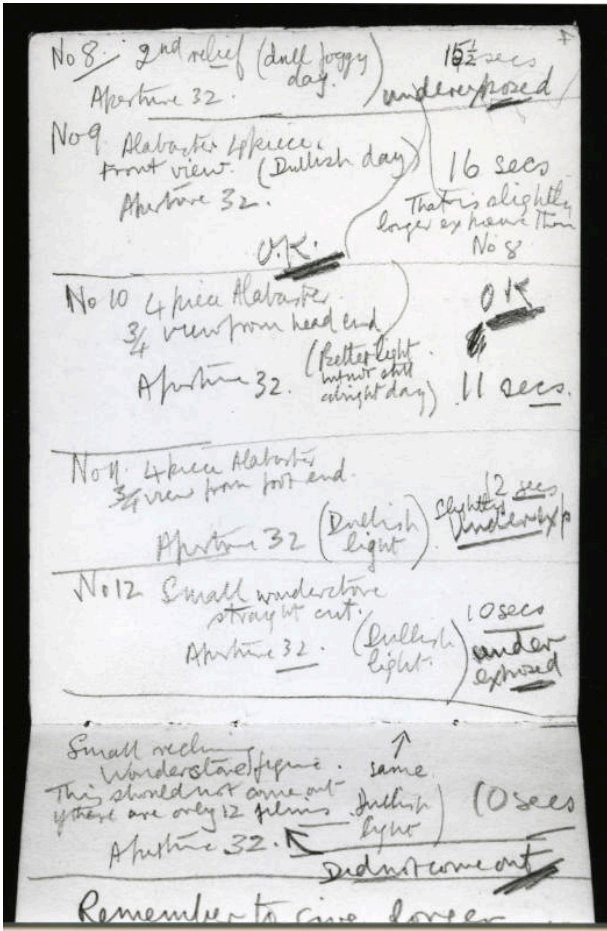 No 8. 2nd relief (dull foggy day.) 15½ secs
Aperture 32. underexposed
No 9 Alabaster 4 piece.
Front view. (Dullish day) 16 secs
Aperture 32. That is slightly
longer exposure than
No 8
O.K.
No 10 4 piece Alabaster. OK
3/4 view from head end
Aperture 32. (Better light
but not still
a bright day) 11 secs.
No 11. 4 piece Alabaster
3/4 view from foot end. 12 secs
Aperture 32 (Dullish light) Slightly Underexp
No 12 Small wonderstone
straight cut. 10 secs
Aperture 32. (Dullish light.) under
exposed
Small reclining
Wonderstone figure. same
This should not come out
if there are only 12 films. dullish light) 10 secs
Aperture 32.
Did not come out
Remember to give longer